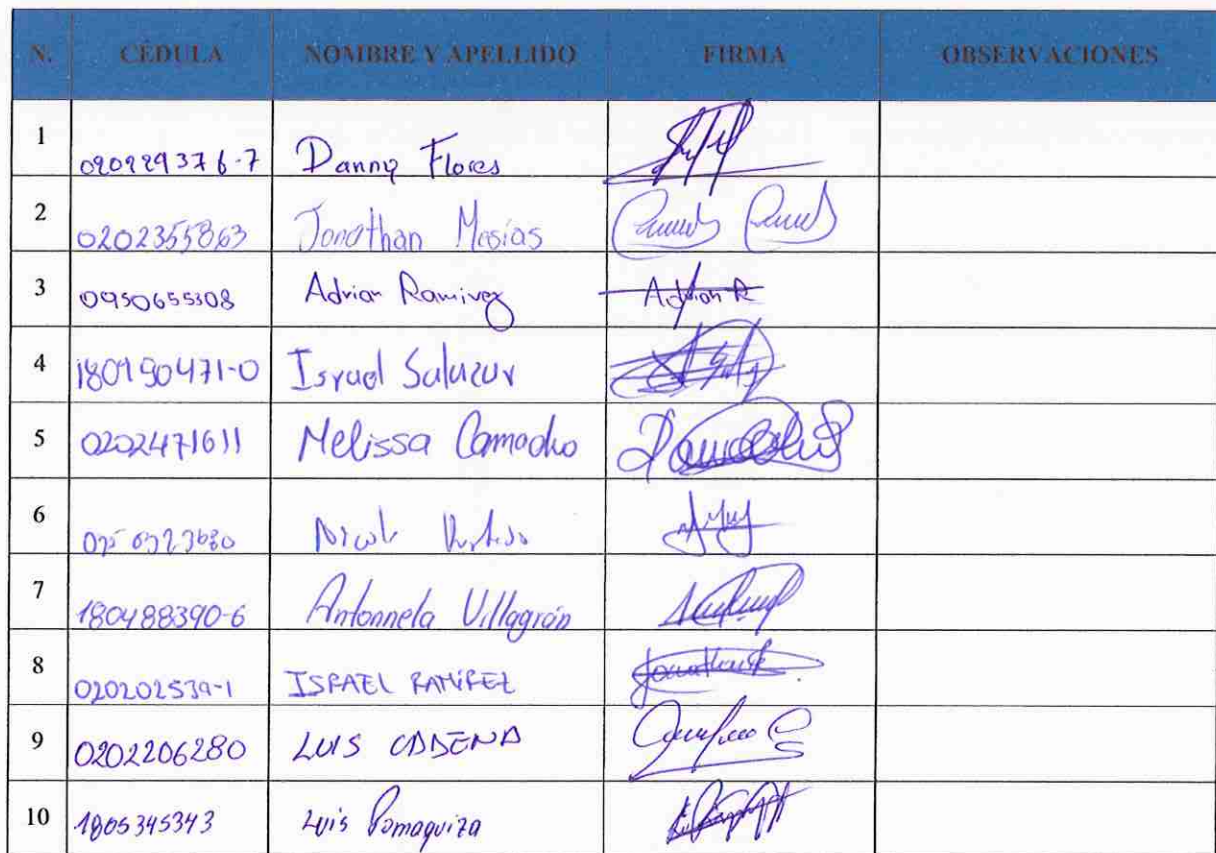 N. CÉDULA NOMBRE Y APELLIDO FIRMA OBSERVACIONES
1 020229376-7 Danny Flores
2 0202355863 Jonathan Mesías
3 0950655308 Adrian Ramirez Adrian R
4 180190471-0 Israel Salazar
5 0202471611 Melissa Camacho
6 Nicole
7 180488390-6 Antonnela Villagrán
8 020202539-1 ISRAEL RAMÍREZ
9 0202206280 LUIS CADENA
10 1805345343 Luis Pomaquiza